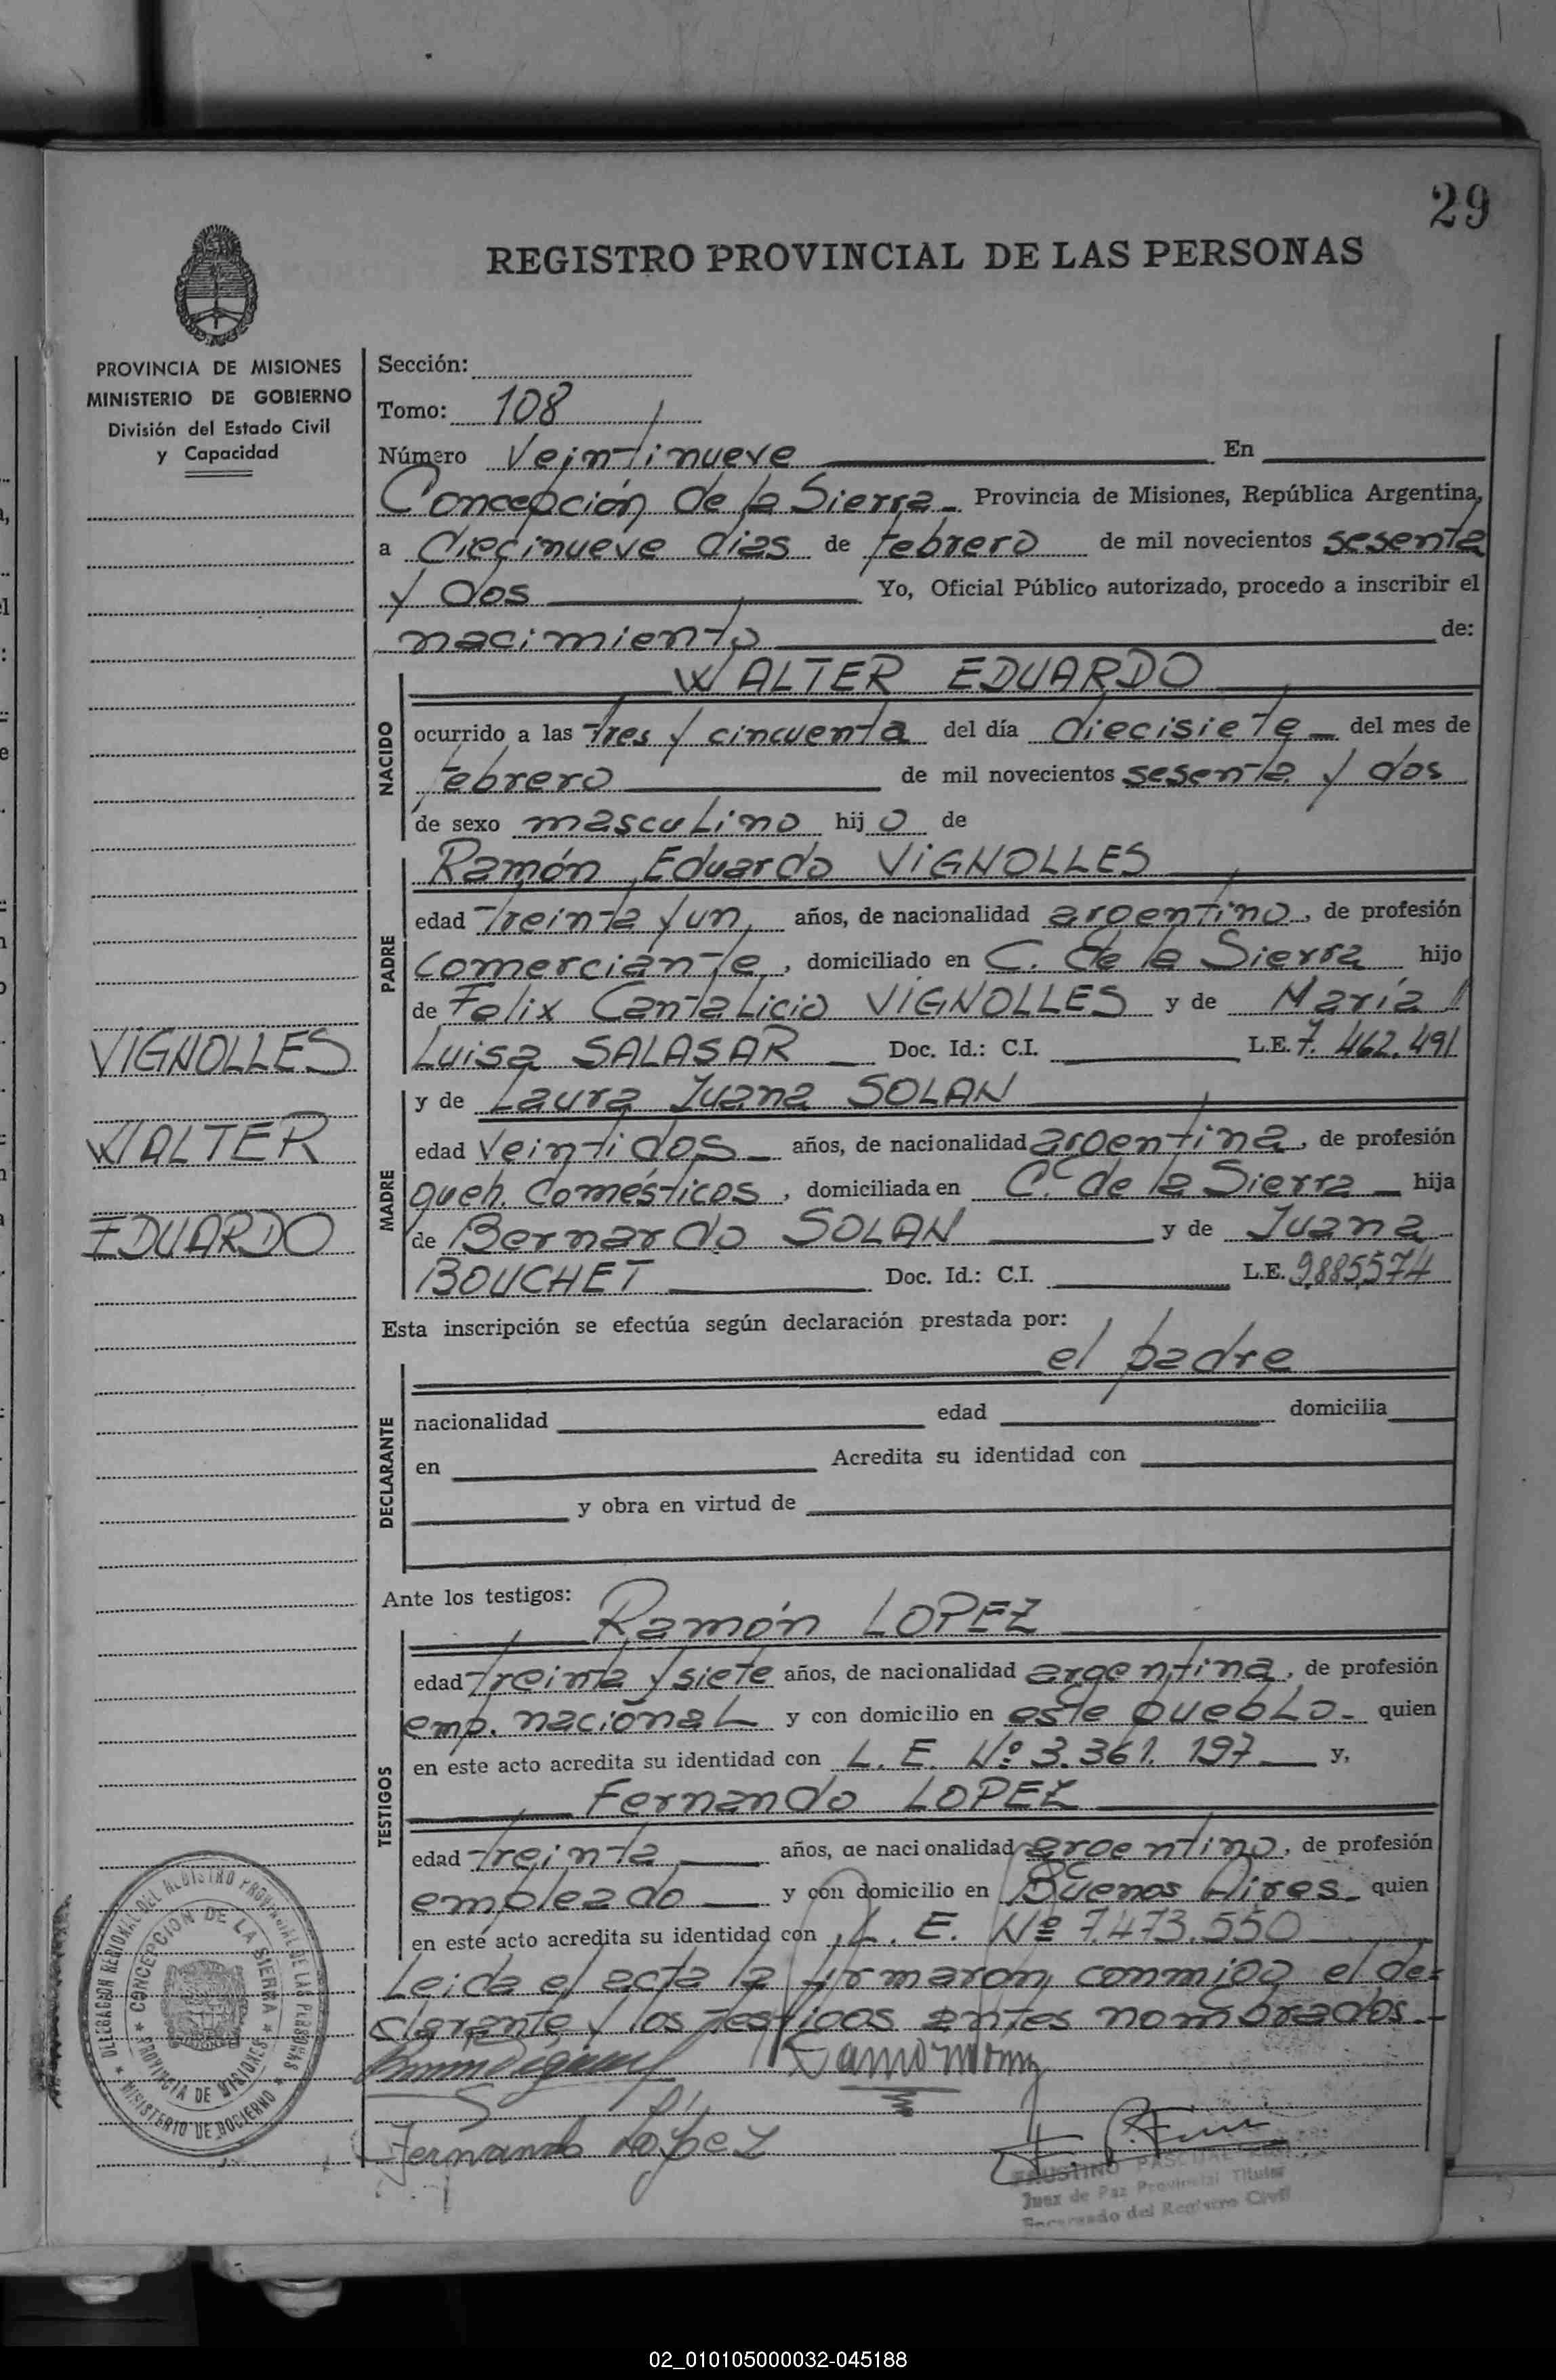 29
REGISTRO PROVINCIAL DE LAS PERSONAS
PROVINCIA DE MISIONES
MINISTERIO DE GOBIERNO
División del Estado Civil
y Capacidad
VIGNOLLES
WALTER
EDUARDO
Sección:
Tomo: 108
Número Veintinueve En
Concepción de la Sierra Provincia de Misiones, República Argentina,
a diecinueve dias de febrero de mil novecientos sesenta
y dos Yo, Oficial Público autorizado, procedo a inscribir el
nacimiento de:
NACIDO
WALTER EDUARDO
ocurrido a las tres y cincuenta del día diecisiete del mes de
febrero de mil novecientos sesenta y dos
de sexo masculino hijo de
PADRE
Ramón Eduardo VIGNOLLES
edad treinta y un años, de nacionalidad argentino, de profesión
comerciante, domiciliado en C. de la Sierra hijo
de Felix Cantalicio VIGNOLLES y de María
Luisa SALASAR Doc. Id.: C.I. L.E. 7.462.491
MADRE
y de Laura Juana SOLAN
edad veintidos años, de nacionalidad argentina, de profesión
queh. domésticos, domiciliada en C. de la Sierra hija
de Bernardo SOLAN y de Juana
BOUCHET Doc. Id.: C.I. L.E. 9.885.574
Esta inscripción se efectúa según declaración prestada por:
DECLARANTE
el padre
nacionalidad edad domicilia
en Acredita su identidad con
y obra en virtud de
Ante los testigos:
TESTIGOS
Ramón LOPEZ
edad treinta y siete años, de nacionalidad argentina, de profesión
emp. nacional y con domicilio en este pueblo quien
en este acto acredita su identidad con L. E. Nº 3.361.197 y,
Fernando LOPEZ
edad treinta años, de nacionalidad argentino, de profesión
empleado y con domicilio en Buenos Aires quien
en este acto acredita su identidad con L. E. Nº 7.473.550
Leida el acta la firmaron conmigo el de=
clarante y los testigos antes nombrados.-
Fernando López
DELEGACION REGIONAL DEL REGISTRO PROVINCIAL DE LAS PERSONAS
MINISTERIO DE GOBIERNO
CONCEPCION DE LA SIERRA
PROVINCIA DE MISIONES
FAUSTINO PASCUAL
Juez de Paz Provincial Titular
Encargado del Registro Civil
02_010105000032-045188